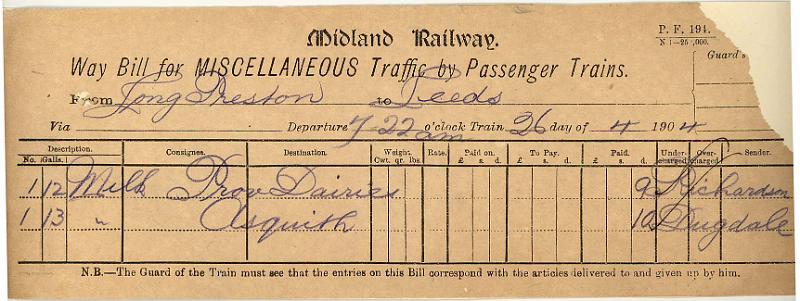 Midland Railway.
P. F. 194.
N 1—25 ,000.
Way Bill for MISCELLANEOUS Traffic by Passenger Trains.
Guard's
From Long Preston to Leeds
Via Departure 7-22 am o'clock Train 26 day of 4 1904
Description. Consignee. Destination. Weight. Rate. Paid on. To Pay. Paid. Under-charged Over-charged Sender.
No. Galls. Cwt. qr. lbs. £ s. d. £ s. d. £ s. d.
1 12 Milk Prov Dairies 9 Richardson
1 13 " Asquith 10 Dugdale
N.B.—The Guard of the Train must see that the entries on this Bill correspond with the articles delivered to and given up by him.